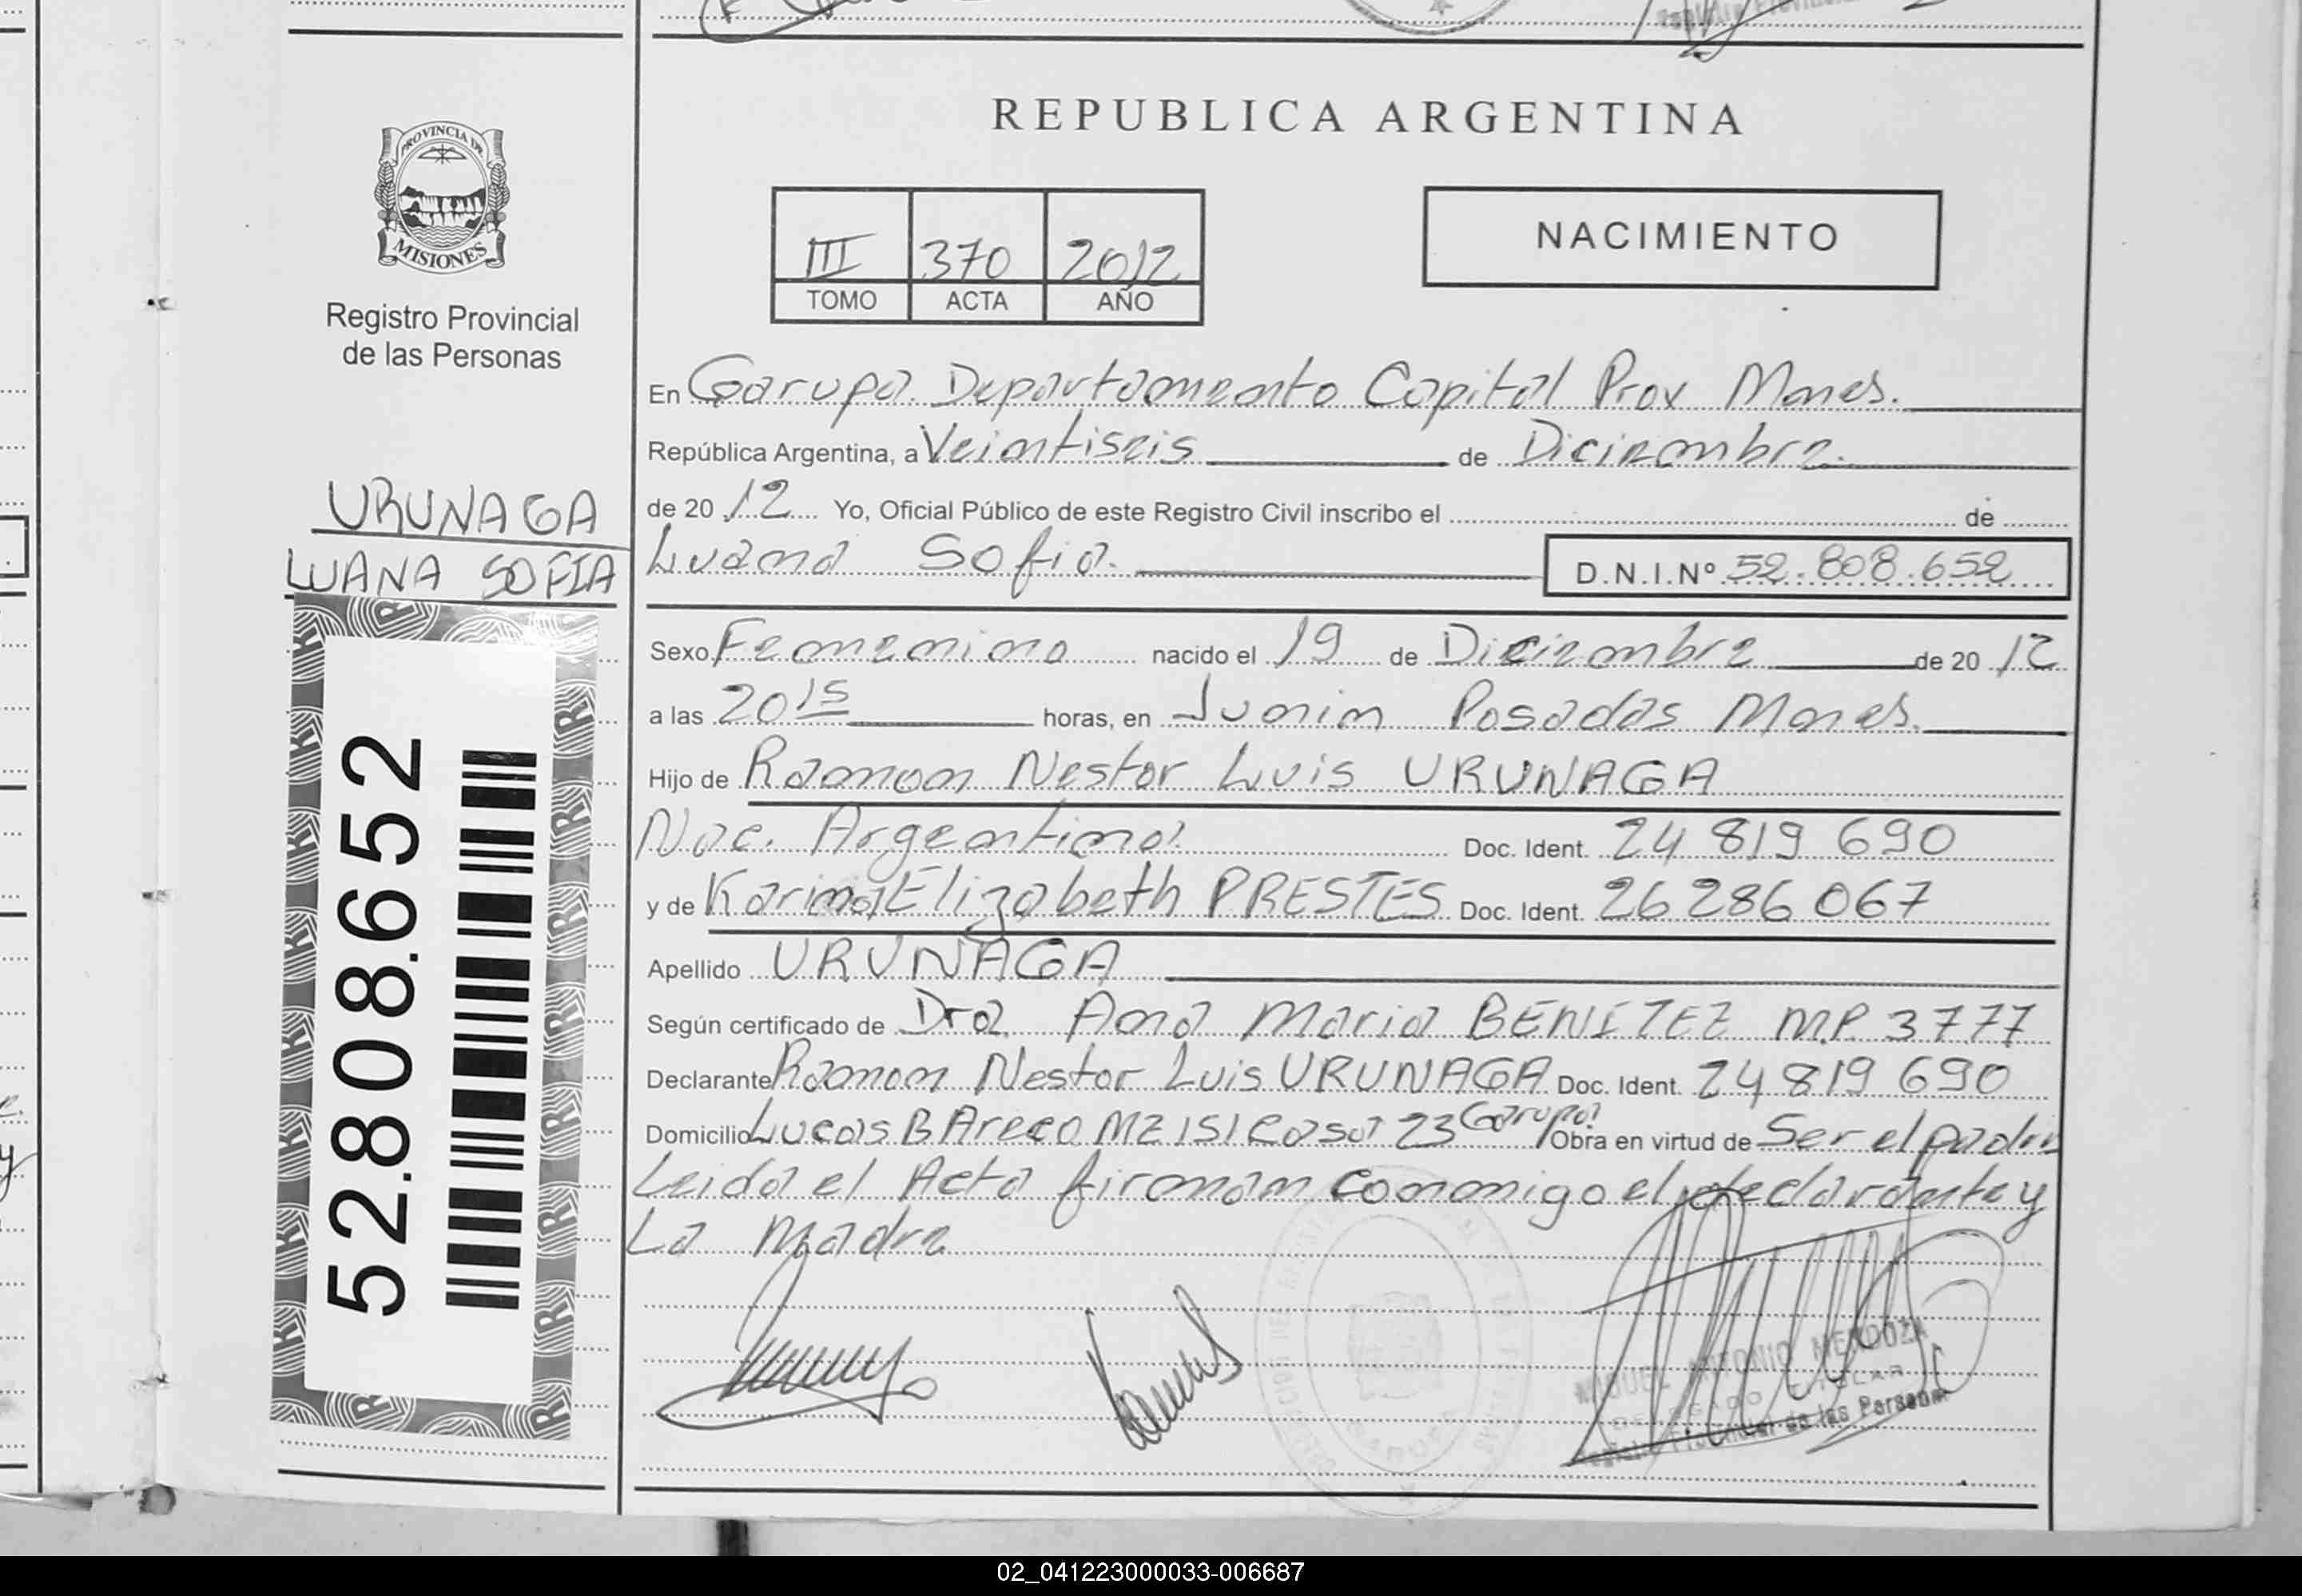 REPUBLICA ARGENTINA
PROVINCIA DE
MISIONES
Registro Provincial
de las Personas
URUNAGA
LUANA SOFIA
52.808.652
III 370 2012
TOMO ACTA AÑO
NACIMIENTO
En Garupa. Departamento Capital Prov Mnes.
República Argentina, a Veintiseis de Diciembre.
de 20 12 Yo, Oficial Público de este Registro Civil inscribo el de
Luana Sofia. D.N.I.Nº 52.808.652
Sexo Femenino nacido el 19 de Diciembre de 20 12
a las 20 15 horas, en Junin Posadas Mnes.
Hijo de Ramon Nestor Luis URUNAGA
Nac. Argentina Doc. Ident. 24 819 690
y de Karina Elizabeth PRESTES Doc. Ident. 26 286 067
Apellido URUNAGA
Según certificado de Dra Ana Maria BENITEZ M.P. 3777
Declarante Ramon Nestor Luis URUNAGA Doc. Ident. 24 819 690
Domicilio Lucas B Areco MZ 151 Casa 23 Garupa Obra en virtud de Ser el padre
Leida el Acta firman conmigo el declarante y
La Madre
MIGUEL ANTONIO MENDOZA
DELEGADO TITULAR
Registro Provincial de las Personas
02_041223000033-006687